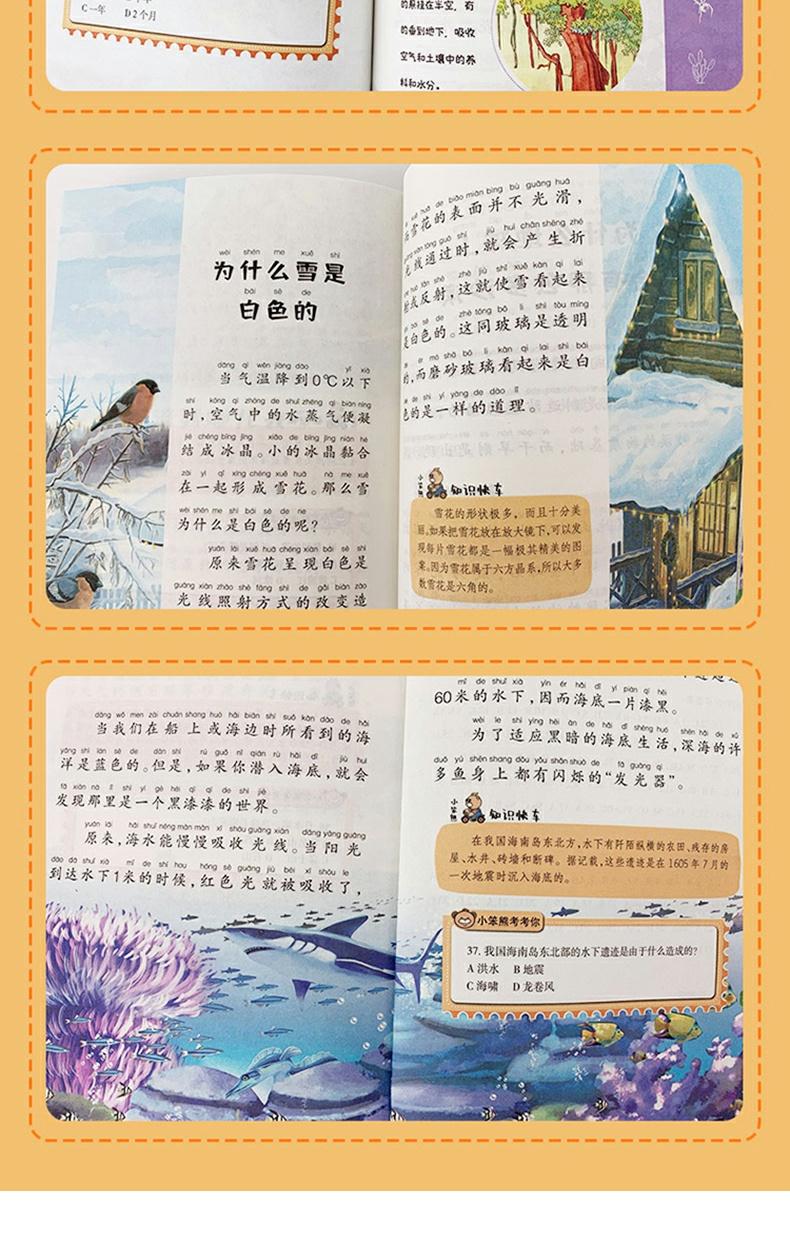 C 一年 D 2个月
的悬挂在半空，有
的垂到地下，吸收
空气和土壤中的养
料和水分。
wèi shén me xuě shì
为什么雪是
bái sè de
白色的
dāng qì wēn jiàng dào yǐ xià
当气温降到0℃以下
shí kōng qì zhōng de shuǐ zhēng qì biàn níng
时，空气中的水蒸气便凝
jié chéng bīng jīng xiǎo de bīng jīng nián hé
结成冰晶。小的冰晶黏合
zài yì qǐ xíng chéng xuě huā nà me xuě
在一起形成雪花。那么雪
wèi shén me shì bái sè de ne
为什么是白色的呢？
yuán lái xuě huā chéng xiàn bái sè shì
原来雪花呈现白色是
guāng xiàn zhào shè fāng shì de gǎi biàn zào
光线照射方式的改变造
xuě huā de biǎo miàn bìng bù guāng huá
雪花的表面并不光滑，
guāng xiàn tōng guò shí jiù huì chǎn shēng zhé
光线通过时，就会产生折
huò fǎn shè zhè jiù shǐ xuě kàn qǐ lái
射或反射，这就使雪看起来
shì bái sè de zhè tóng bō li shì tòu míng
是白色的。这同玻璃是透明
de ér mó shā bō li kàn qǐ lái shì bái
的，而磨砂玻璃看起来是白
sè de shì yí yàng de dào lǐ
色的是一样的道理。
小笨熊 知识快车
雪花的形状极多，而且十分美
丽。如果把雪花放在放大镜下，可以发
现每片雪花都是一幅极其精美的图
案。因为雪花属于六方晶系，所以大多
数雪花是六角的。
dāng wǒ men zài chuán shang huò hǎi biān shí suǒ kàn dào de hǎi
当我们在船上或海边时所看到的海
yáng shì lán sè de dàn shì rú guǒ nǐ qián rù hǎi dǐ jiù huì
洋是蓝色的。但是，如果你潜入海底，就会
fā xiàn nà lǐ shì yí gè hēi qī qī de shì jiè
发现那里是一个黑漆漆的世界。
yuán lái hǎi shuǐ néng màn màn xī shōu guāng xiàn dāng yáng guāng
原来，海水能慢慢吸收光线。当阳光
dào dá shuǐ xià mǐ de shí hou hóng sè guāng jiù bèi xī shōu le
到达水下1米的时候，红色光就被吸收了，
mǐ de shuǐ xià yīn ér hǎi dǐ yí piàn qī hēi
60米的水下，因而海底一片漆黑。
wèi le shì yìng hēi àn de hǎi dǐ shēng huó shēn hǎi de xǔ
为了适应黑暗的海底生活，深海的许
duō yú shēn shang dōu yǒu shǎn shuò de fā guāng qì
多鱼身上都有闪烁的“发光器”。
小笨熊 知识快车
在我国海南岛东北方，水下有阡陌纵横的农田、残存的房
屋、水井、砖墙和断碑。据记载，这些遗迹是在1605年7月的
一次地震时沉入海底的。
小笨熊考考你
37. 我国海南岛东北部的水下遗迹是由于什么造成的?
A 洪水 B 地震
C 海啸 D 龙卷风